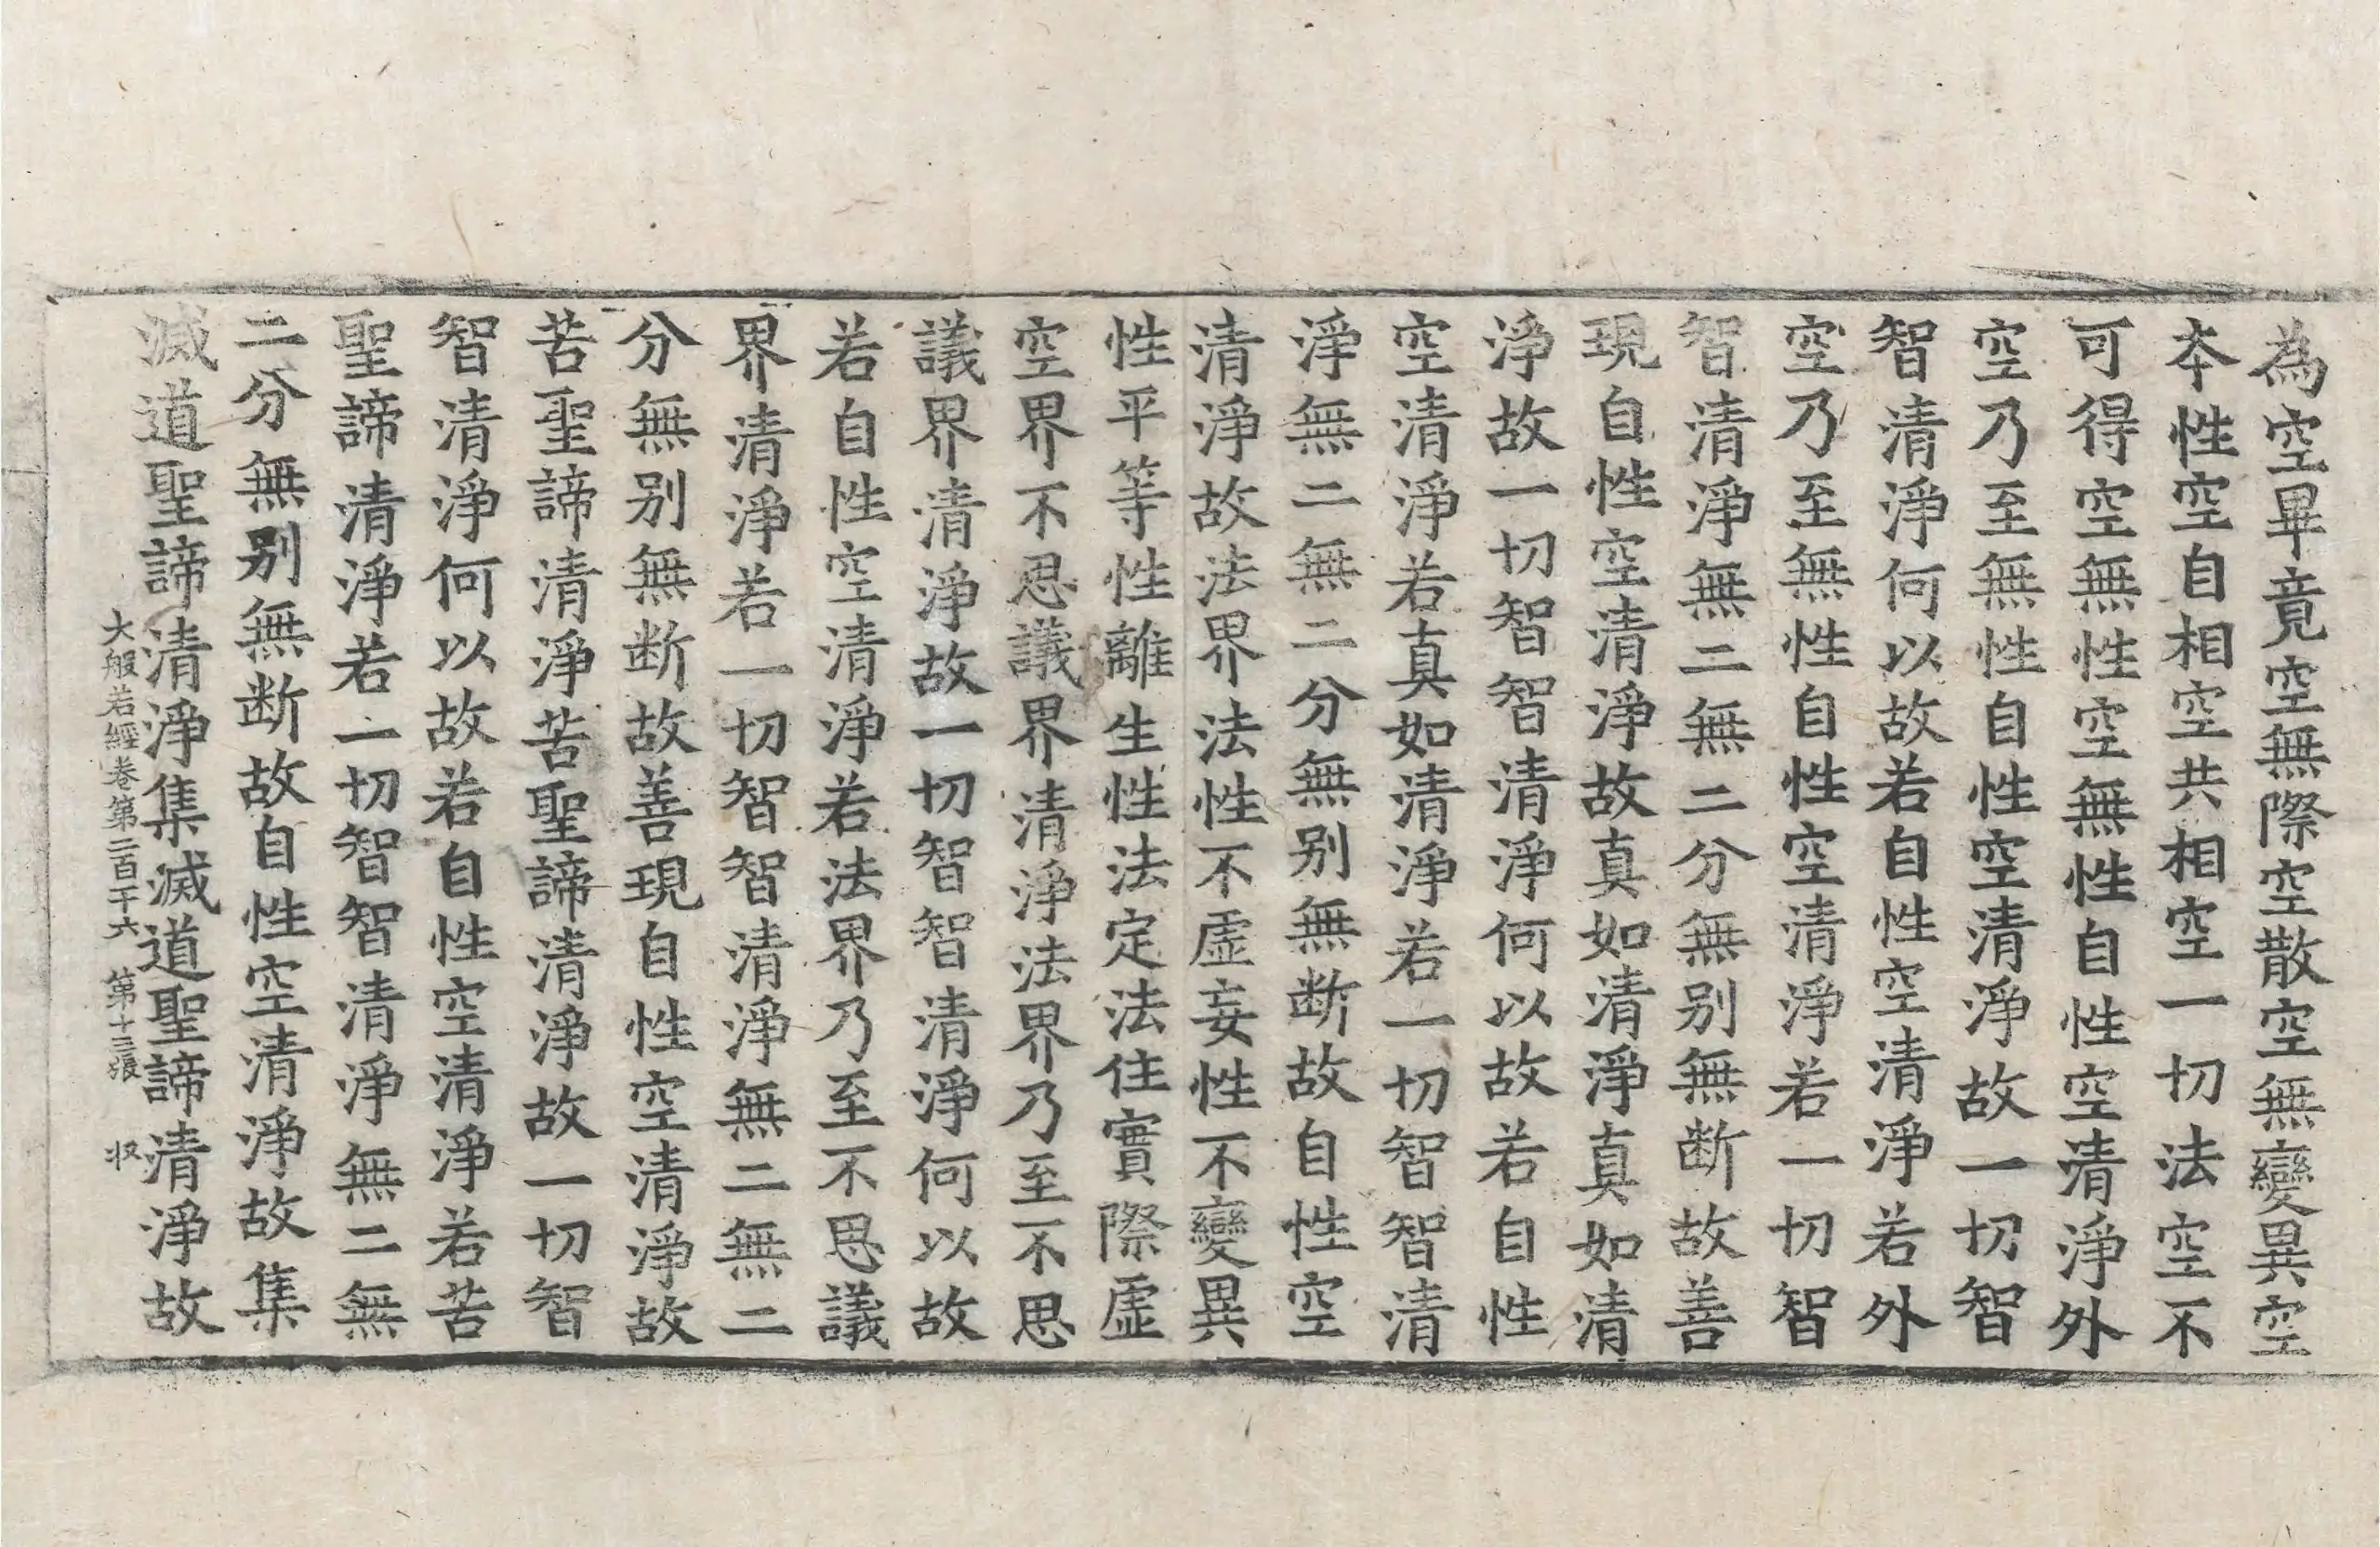 為空畢竟空無際空散空無變異空
夲性空自相空共相空一切法空不
可得空無性空無性自性空清淨外
空乃至無性自性空清淨故一切智
智清淨何以故若自性空清淨若外
空乃至無性自性空清淨若一切智
智清淨無二無二分無别無断故善
現自性空清淨故真如清淨真如清
淨故一切智智清淨何以故若自性
空清淨若真如清淨若一切智智清
淨無二無二分無别無断故自性空
清淨故法界法性不虛妄性不變異
性平等性離生性法定法住實際虛
空界不思議界清淨法界乃至不思
議界清淨故一切智智清淨何以故
若自性空清淨若法界乃至不思議
界清淨若一切智智清淨無二無二
分無别無断故善現自性空清淨故
苦聖諦清淨苦聖諦清淨故一切智
智清淨何以故若自性空清淨若苦
聖諦清淨若一切智智清淨無二無
二分無别無断故自性空清淨故集
滅道聖諦清淨集滅道聖諦清淨故
大般若經卷第二百干六 第十三張 収